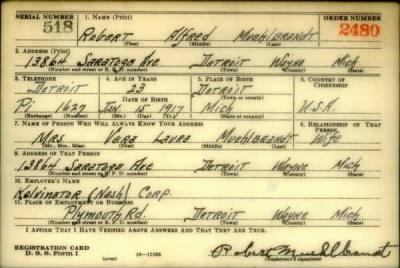 SERIAL NUMBER 1. NAME (Print) ORDER NUMBER
518 Robert Alfred Muehlbrandt 2480
(First) (Middle) (Last)
2. ADDRESS (Print)
13864 Saratoga Ave Detroit Wayne Mich
(Number and street or R. F. D. number) (Town) (County) (State)
3. TELEPHONE 4. AGE IN YEARS 5. PLACE OF BIRTH 6. COUNTRY OF CITIZENSHIP
Detroit 23 Detroit
DATE OF BIRTH (Town or county)
Pi 1627 Jan 15 1917 Mich U.S.A.
(Exchange) (Number) (Mo.) (Day) (Yr.) (State or country)
7. NAME OF PERSON WHO WILL ALWAYS KNOW YOUR ADDRESS 8. RELATIONSHIP OF THAT PERSON
Mrs. Vera Laura Muehlbrandt Wife
(Mr., Mrs., Miss) (First) (Middle) (Last)
9. ADDRESS OF THAT PERSON
13864 Saratoga Ave Detroit Wayne Mich
(Number and street or R. F. D. number) (Town) (County) (State)
10. EMPLOYER'S NAME
Kelvinator (Nash) Corp.
11. PLACE OF EMPLOYMENT OR BUSINESS
Plymouth Rd. Detroit Wayne Mich
(Number and street or R. F. D. number) (Town) (County) (State)
I AFFIRM THAT I HAVE VERIFIED ABOVE ANSWERS AND THAT THEY ARE TRUE.
REGISTRATION CARD
D. S. S. Form 1 16-17105 Robert Muehlbrandt
(Registrant's signature)